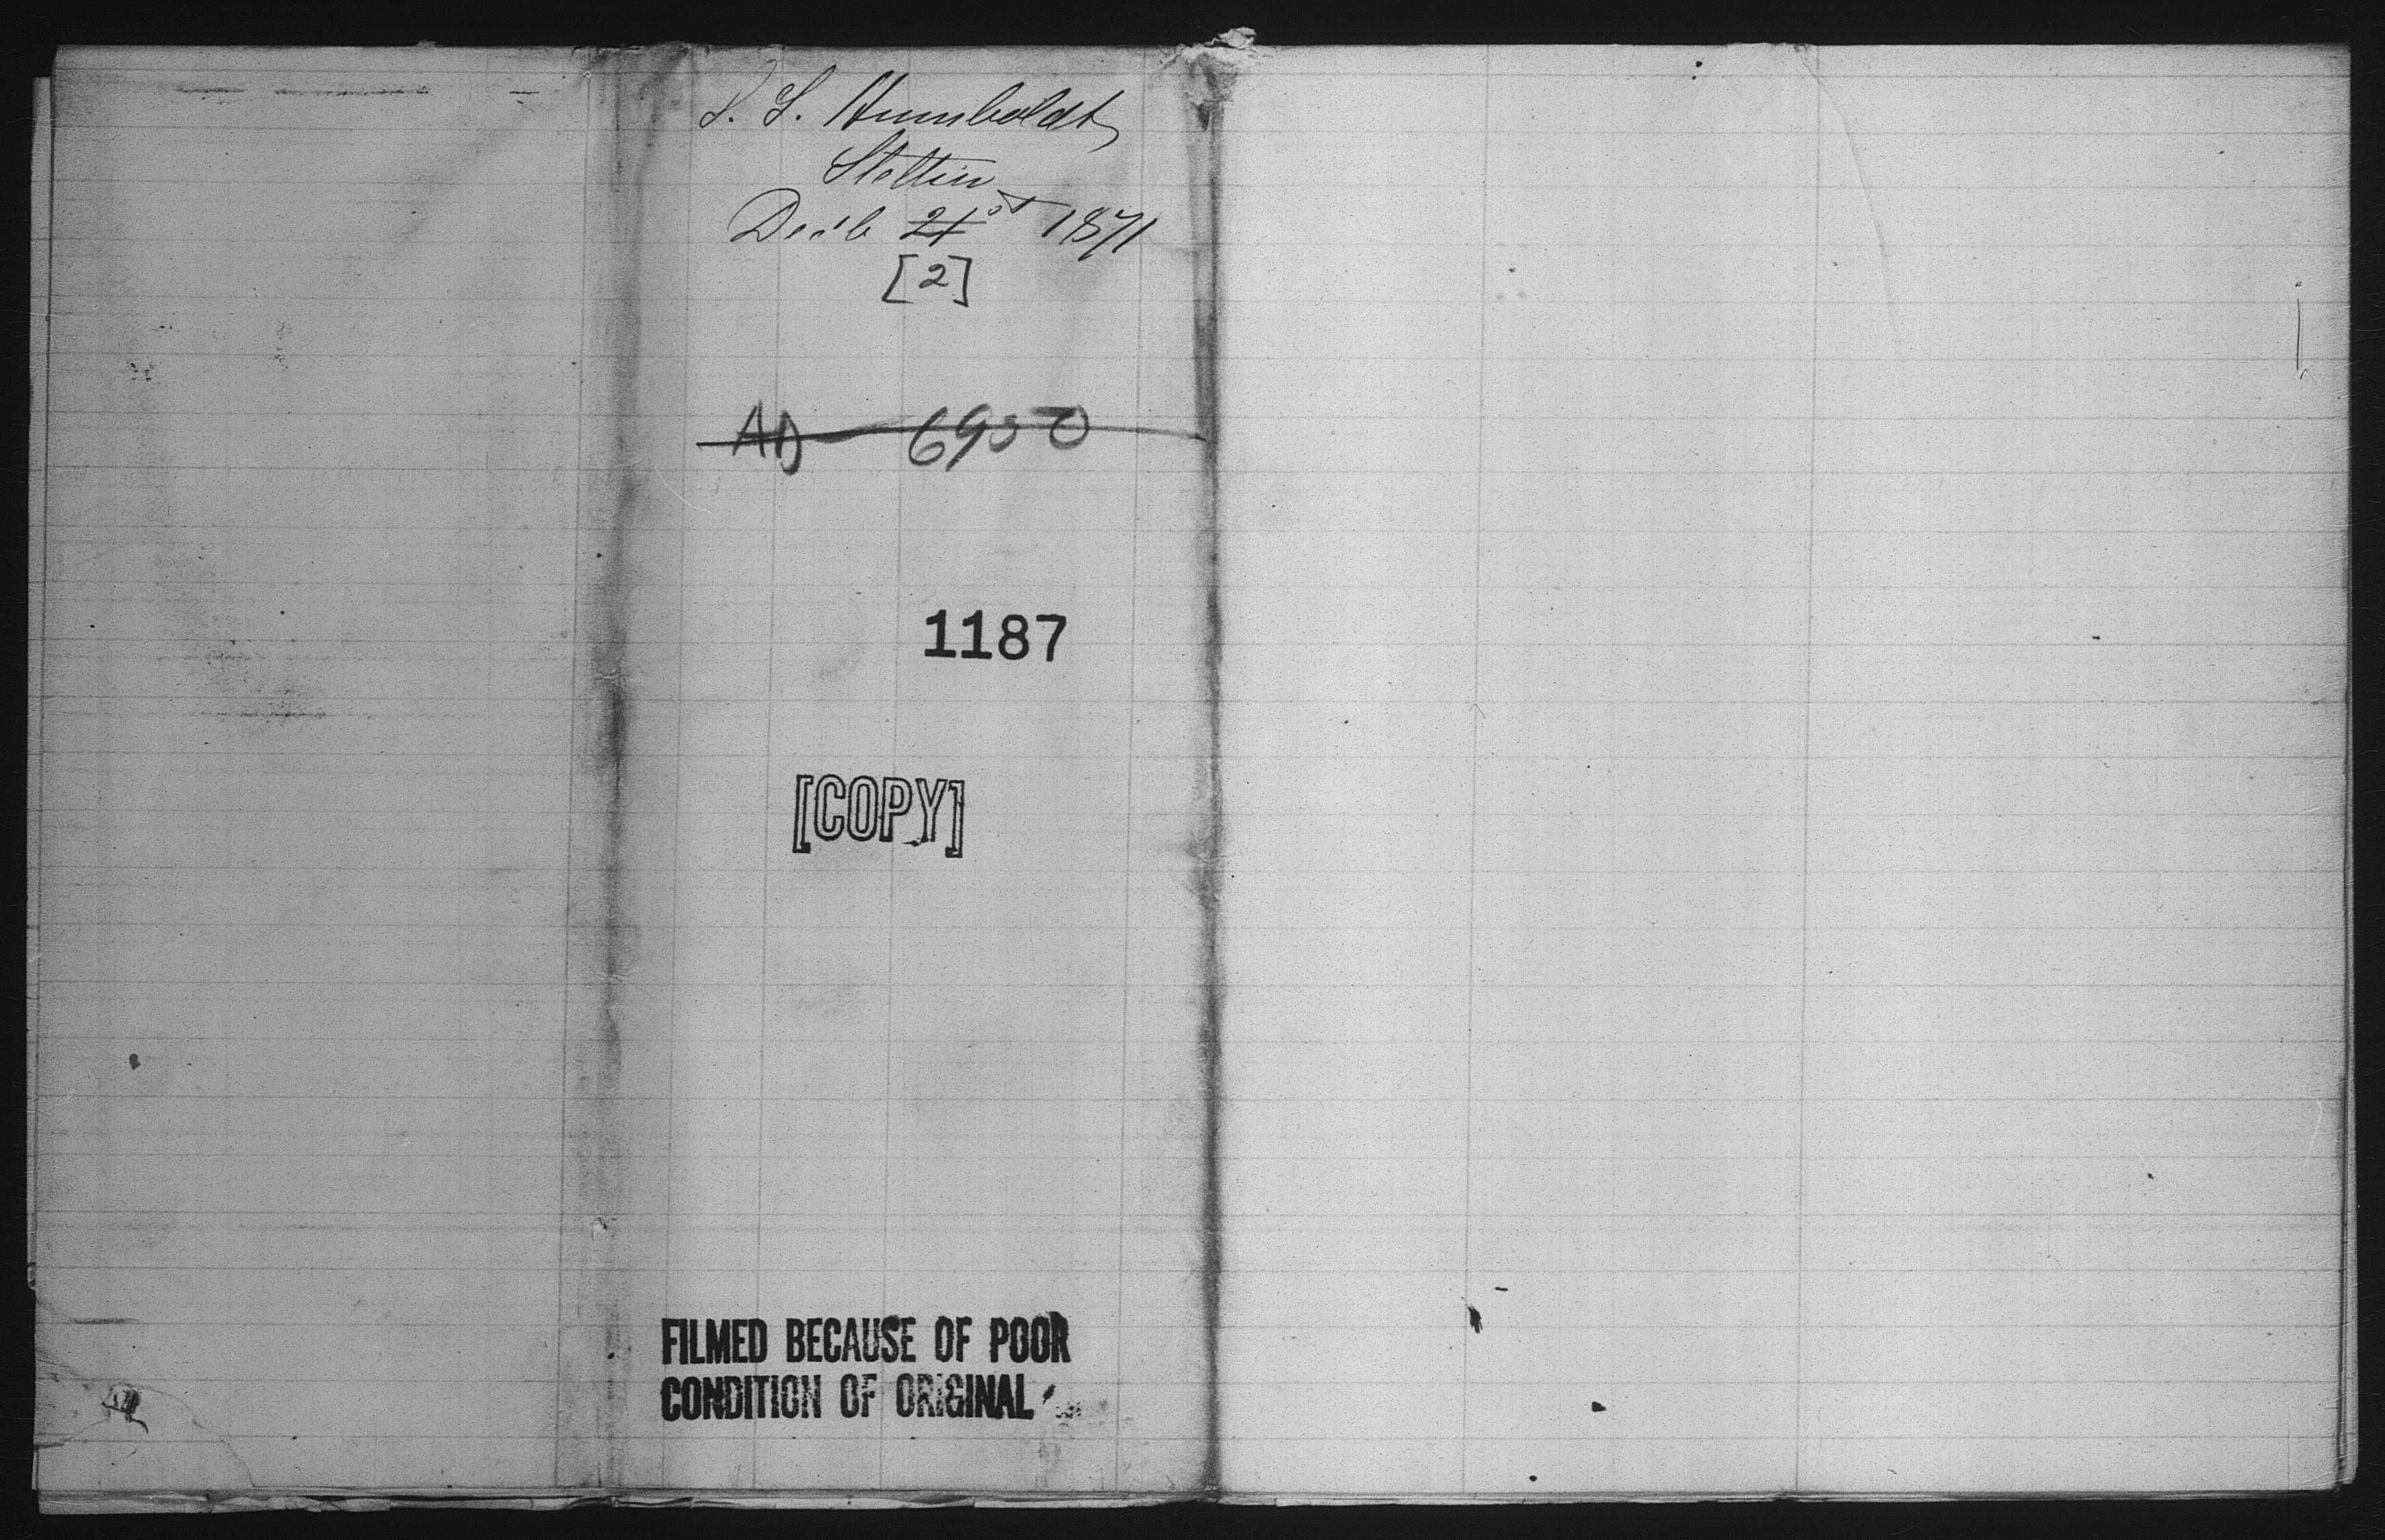 S. S. Humboldt,
Stettin
Dec'b 21st 1871
[2]
AD 6950
1187
[COPY]
FILMED BECAUSE OF POOR
CONDITION OF ORIGINAL